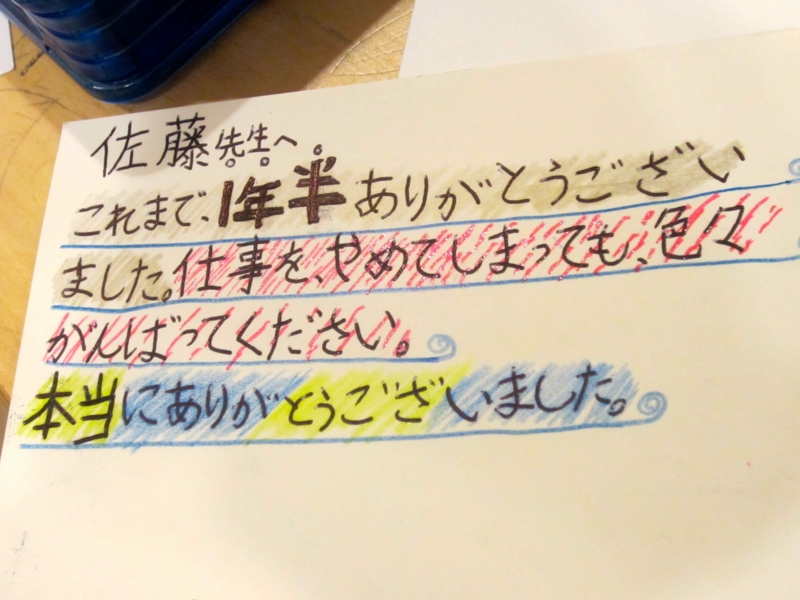 佐藤先生へ。
これまで、1年半ありがとうござい
ました。仕事を、やめてしまっても、色々
がんばってください。
本当にありがとうございました。